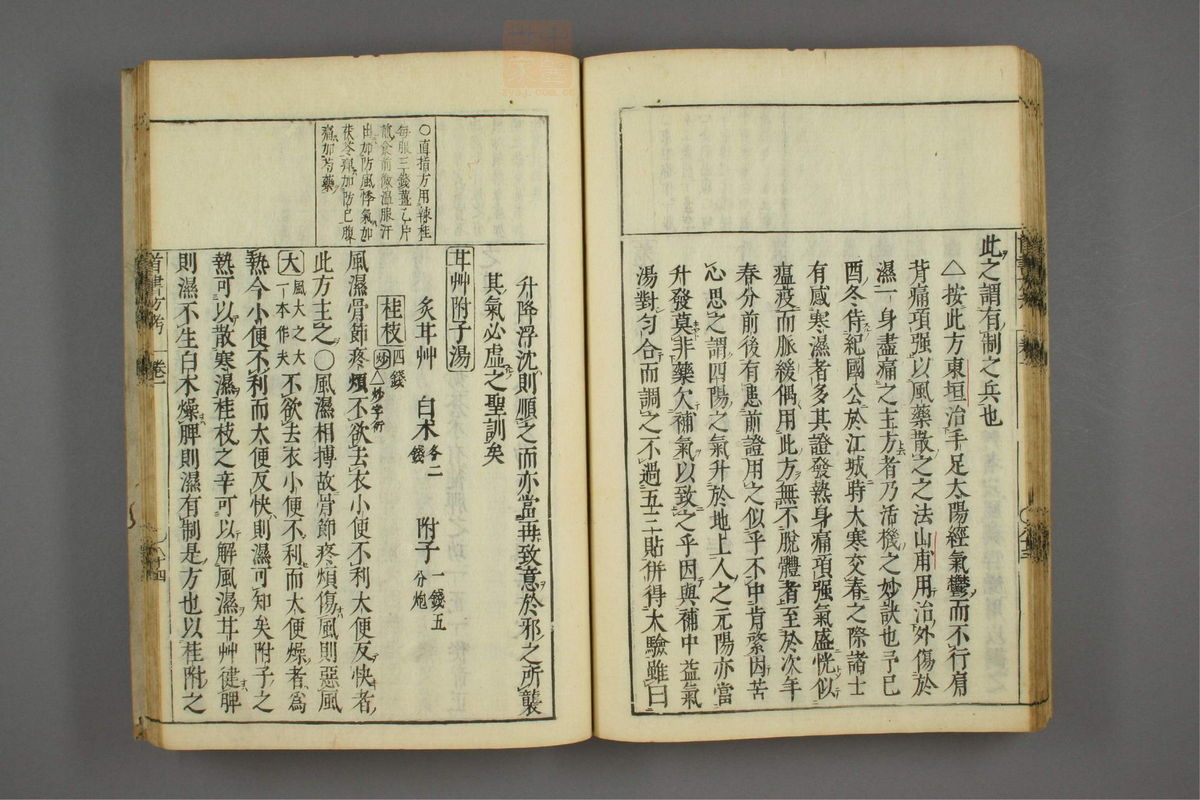 此之謂有制之兵也
△按此方東垣治手足太陽經氣鬱而不行肩
背痛項强以風藥散之之法山甫用治外傷於
濕一身盡痛之主方者乃活機之妙訣也予已
酉冬侍紀國公於江城時大寒交春之際諸士
有感寒濕者多其證發熱身痛項强氣盛恍似
瘟疫而脈緩偶用此方無不脫體者至於次年
春分前後有患前證用之似乎不中肯綮因苦
心思之謂四陽之氣升於地上人之元陽亦當
升發莫非藥欠補氣以致之乎因與補中益氣
湯對勻合而調之不過五三貼併得大驗雖曰
升降浮沈則順之而亦當再致意於邪之所襲
其氣必虛之聖訓矣
甘艸附子湯
炙甘艸 白朮各二錢 附子一錢五分炮
桂枝四錢炒 △炒字衍
風濕骨節疼煩不欲去衣小便不利大便反快者
此方主之○風濕相摶故骨節疼煩傷風則惡風
大風大之大一本作夫不欲去衣小便不利而大便燥者爲
熱今小便不利而大便反快則濕可知矣附子之
熱可以散寒濕桂枝之辛可以解風濕甘艸健脾
則濕不生白朮燥脾則濕有制是方也以桂附之
○直指方用辣桂
每服三錢薑七片
煎食前微溫服汗
出加防風悸氣加
茯苓痺加防已腹
痛加芍藥
首書方考 卷一